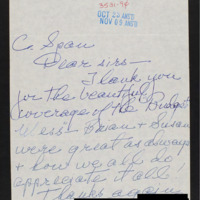 3531-94
OCT 29 ANSTD
NOV 05 ANSTD
C. Span
Dear sirs —
Thank you
for the beautiful
coverage of the "Bridges"
Mess - Brian + Susan
were great as always
+ how we also do
appreciate it all
Thanks again